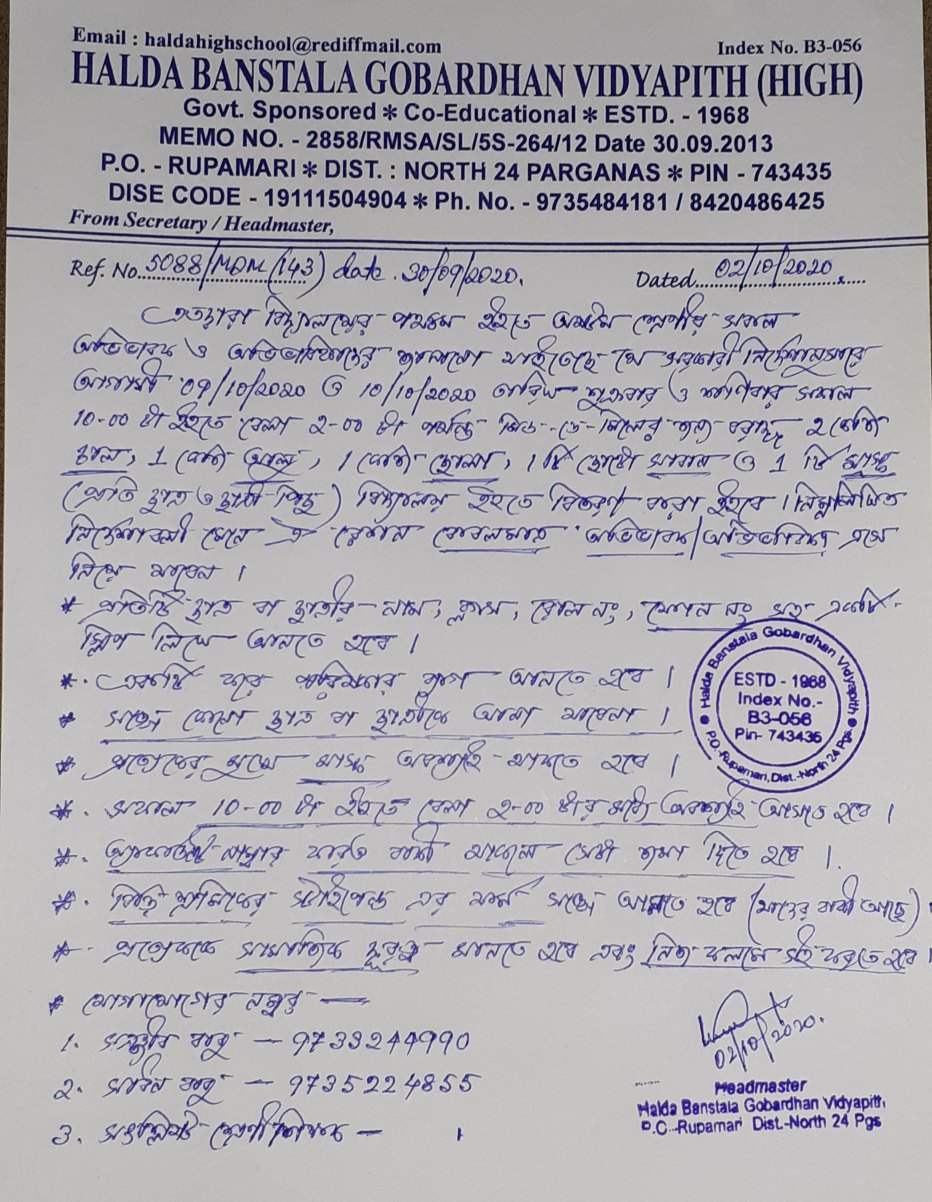 Email : haldahighschool@rediffmail.com
Index No. B3-056
HALDA BANSTALA GOBARDHAN VIDYAPITH (HIGH)
Govt. Sponsored * Co-Educational * ESTD. - 1968
MEMO NO. - 2858/RMSA/SL/5S-264/12 Date 30.09.2013
P.O. - RUPAMARI * DIST. : NORTH 24 PARGANAS * PIN - 743435
DISE CODE - 19111504904 * Ph. No. - 9735484181 / 8420486425
From Secretary / Headmaster,
Ref. No. 5088/MDM(143) date. 30/09/2020.
Dated 02/10/2020.
এতদ্বারা বিদ্যালয়ের পঞ্চম হইতে অষ্টম শ্রেণীর সকল
অভিভাবক ও অভিভাবিকাদের জানানো যাইতেছে যে সরকারী নির্দেশানুসারে
আগামী 09/10/2020 ও 10/10/2020 তারিখ শুক্রবার ও শনিবার সকাল
10-00 টা হইতে বেলা 2-00 টা পর্যন্ত মিড-ডে-মিলের জন্য বরাদ্দ 2 কেজি
চাল, 1 কেজি আলু, 1 কেজি ছোলা, 1 টি ছোটো সাবান ও 1 টি মাস্ক
(প্রতি ছাত্র ও ছাত্রী পিছু) বিদ্যালয় হইতে বিতরণ করা হইবে। নিম্নলিখিত
নির্দেশাবলী মেনে ঐ রেশন কেবলমাত্র অভিভাবক/অভিভাবিকা এসে
নিয়ে যাবেন।
* প্রতিটি ছাত্র বা ছাত্রীর নাম, ক্লাস, রোল নং, ফোন নং সহ একটি
স্লিপ লিখে আনতে হবে।
* একটি করে পরিষ্কার ব্যাগ আনতে হবে।
* সঙ্গে কোনো ছাত্র বা ছাত্রীকে আনা যাবেনা।
* প্রত্যেকের মুখে মাস্ক অবশ্যই থাকতে হবে।
* সকাল 10-00 টা হইতে বেলা 2-00 টার মধ্যে অবশ্যই আসতে হবে।
* বাকী থাকলে সেটা জমা দিতে হবে।
* এর ফর্ম সঙ্গে আনতে হবে (যাদের বাকী আছে)
* প্রত্যেককে সামাজিক দূরত্ব মানতে হবে এবং নিজ কলমে সই করতে হবে।
* যোগাযোগের নম্বর —
1. বাবু — 9733244990
2. বাবু — 9735224855
3. সংশ্লিষ্ট শ্রেণীশিক্ষক — ।
Halda Banstala Gobardhan Vidyapith
P.O.-Rupamari, Dist.-North 24 Pgs
ESTD - 1968
Index No.-
B3-056
Pin- 743435
02/10/2020.
Headmaster
Halda Banstala Gobardhan Vidyapith
P.O.-Rupamari Dist.-North 24 Pgs